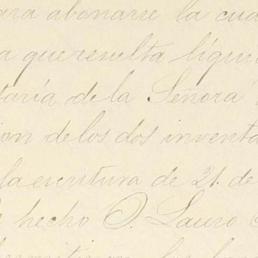 para abonarse la cua
a que resulta líqui
taría de la Señora
ion de los dos inventa
la escritura de 21. de
hecho D. Lauro